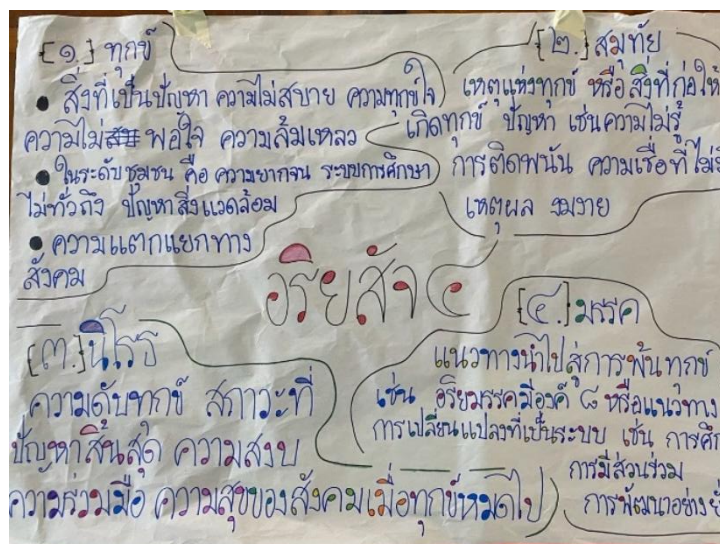 [๑.] ทุกข์
• สิ่งที่เป็นปัญหา ความไม่สบาย ความทุกข์ใจ
ความไม่ พอใจ ความล้มเหลว
• ในระดับชุมชน คือ ความยากจน ระบบการศึกษา
ไม่ทั่วถึง ปัญหาสิ่งแวดล้อม
• ความแตกแยกทาง
สังคม
[๒.] สมุทัย
เหตุแห่งทุกข์ หรือ สิ่งที่ก่อให้
เกิดทุกข์ ปัญหา เช่นความไม่รู้
การติดพนัน ความเชื่อที่ไม่
เหตุผล งมงาย
อริยสัจ ๔
[๓.] นิโรธ
ความดับทุกข์ สภาวะที่
ปัญหาสิ้นสุด ความสงบ
ความร่วมมือ ความสุขของสังคมเมื่อทุกข์หมดไป
[๔.] มรรค
แนวทางนำไปสู่การพ้นทุกข์
เช่น อริยมรรคมีองค์ ๘ หรือแนวทาง
การเปลี่ยนแปลงที่เป็นระบบ เช่น การศึ
การมีส่วนร่วม
การพัฒนาอย่าง